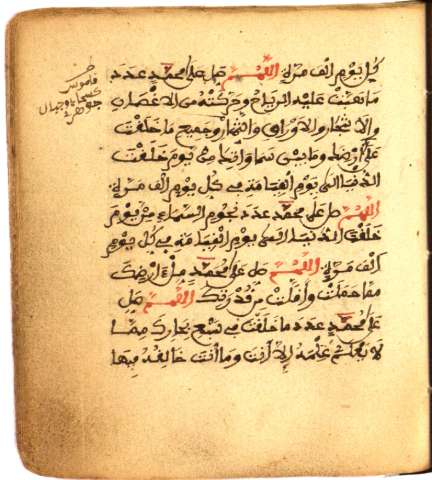 كل يوم الف مرة اللهم صل على محمد عدد
ما هبت عليه الرياح وحركته من الاغصان
والاشجار والاوراق والثمار وجميع ما خلقت
على أرضك وما بين سماواتك من يوم خلقت
الدنيا الى يوم القيامة في كل يوم الف مرة
اللهم صل على محمد عدد نجوم السماء من يوم
خلقت الدنيا الى يوم القيامة في كل يوم
الف مرة اللهم صل على محمد ملء ارضك
مما حملت وأقلت من قدرتك اللهم صل
على محمد عدد ما خلقت في سبع بحارك مما
لا يعلم علمه إلا أنت وما أنت خالقه فيها